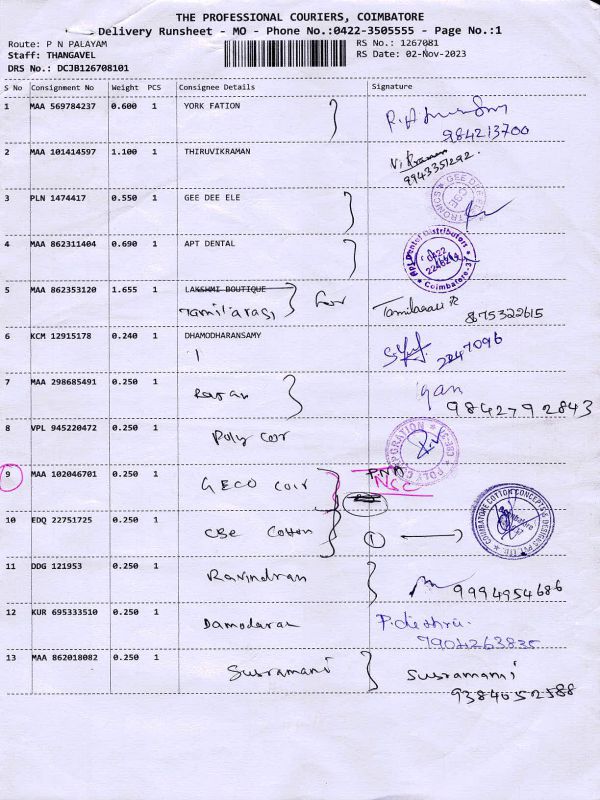 THE PROFESSIONAL COURIERS, COIMBATORE
Delivery Runsheet - MO - Phone No.:0422-3505555 - Page No.:1
Route: P N PALAYAM RS No.: 1267081
Staff: THANGAVEL RS Date: 02-Nov-2023
DRS No.: DCJB126708101
S No Consignment No Weight PCS Consignee Details Signature
1 MAA 569784237 0.600 1 YORK FATION
984213700
2 MAA 101414597 1.100 1 THIRUVIKRAMAN
9943351292.
3 PLN 1474417 0.550 1 GEE DEE ELE
GEE DEE ELE
4 MAA 862311404 0.690 1 APT DENTAL
Apt Dental Distributors
0422
Coimbatore-37
5 MAA 862353120 1.655 1 LAKSHMI BOUTIQUE
Tamilarasi for Tamilarasi R
8875322615
6 KCM 12915178 0.240 1 DHAMODHARANSAMY
2247096
7 MAA 298685491 0.250 1 Rajan
9842792843
8 VPL 945220472 0.250 1 Poly cor
9 MAA 102046701 0.250 1 GECO coir
NSC
10 EDQ 22751725 0.250 1 CBE Cotton 1
COIMBATORE COTTON CONCEPTS & DESIGNS PVT. LTD.
11 DDG 121953 0.250 1 Ravindran
9994954686
12 KUR 695333510 0.250 1 Damodaran
7904263835
13 MAA 862018082 0.250 1 Susramani Susramanni
9384052588